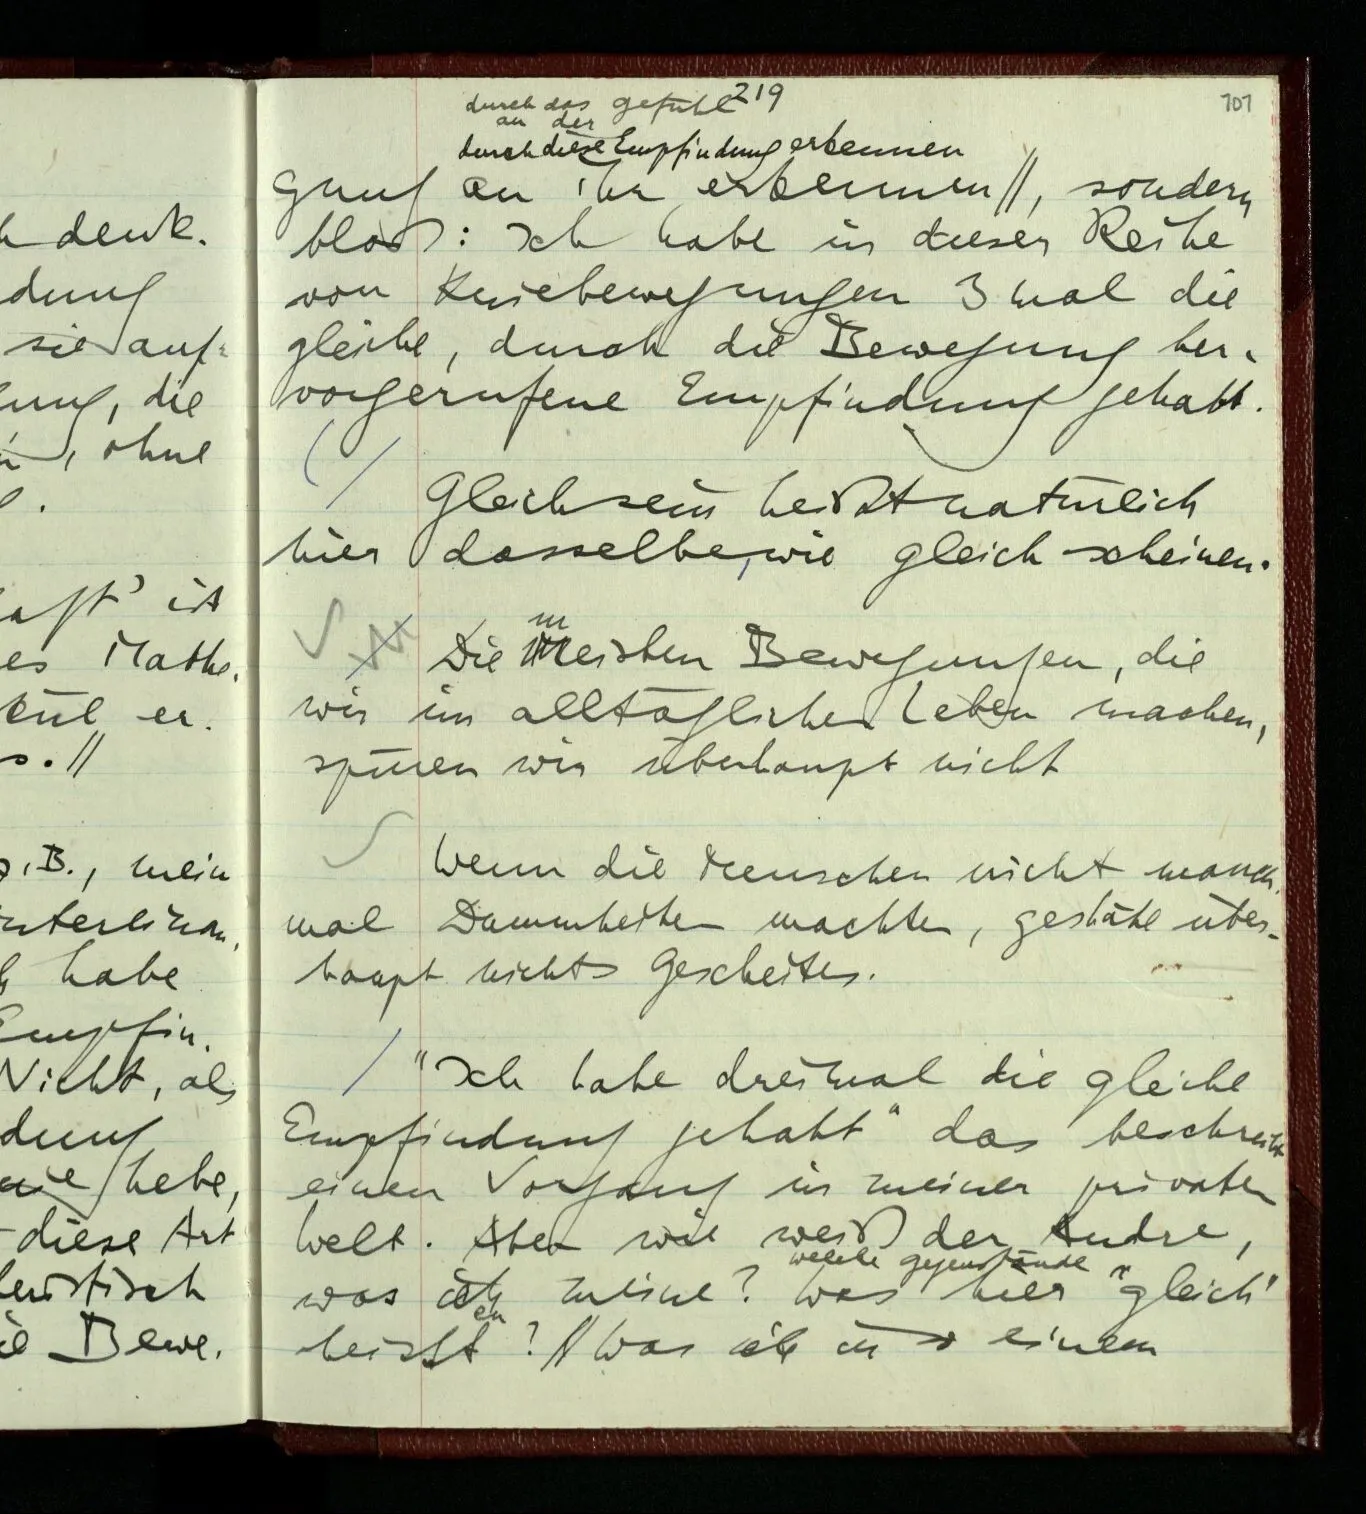 h denk.
dung
sie auf=
ung, die
, ohne
aft' ist
es Mathe.
er.
s.//
z.B., mein
h habe
Empfin.
Nicht, als
dung
hebe,
diese Art
ie Bewe.
219
101
durch das Gefühl
an der
durch diese Empfindung erkennen
gung an ihr erkennen//, sondern
bloß: Ich habe in dieser Reihe
von Kniebewegungen 3 mal die
gleiche, durch die Bewegung her-
vorgerufene Empfindung gehabt.
( /
Gleich sein heißt natürlich
hier dasselbe, wie gleich scheinen.
m
Die Meisten Bewegungen, die
wir im alltäglichen Leben machen,
spüren wir überhaupt nicht
Wenn die Menschen nicht manch-
mal Dummheiten machten, geschähe über-
haupt nichts Gescheites.
/ "Ich habe dreimal die gleiche
Empfindung gehabt" das beschreibt
einen Vorgang in meiner privaten
Welt. Aber wie weiß der Andre,
welche Gegenstände
was ich meine? Was hier "gleich"
en
heißt? // Was ich in einem